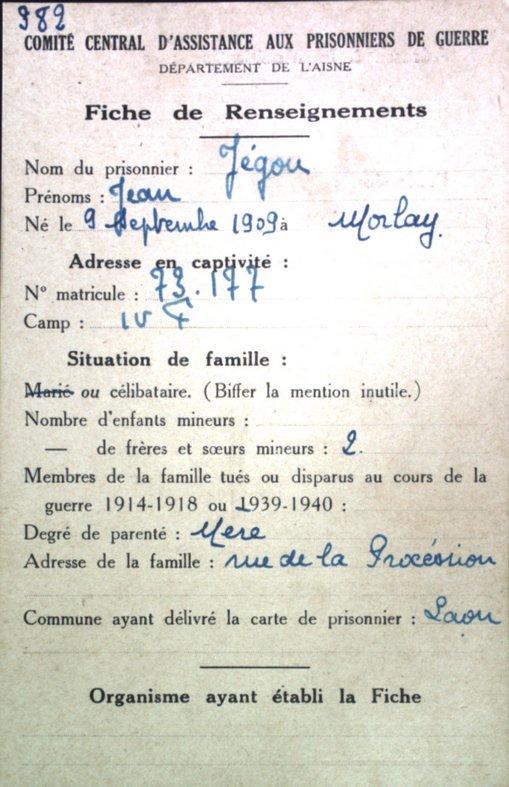 982
COMITÉ CENTRAL D'ASSISTANCE AUX PRISONNIERS DE GUERRE
DÉPARTEMENT DE L'AISNE
Fiche de Renseignements
Nom du prisonnier : Jégou
Prénoms : Jean
Né le 9 Septembre 1909 à Morlay.
Adresse en captivité :
N° matricule : 73.177
Camp : IV F
Situation de famille :
Marié ou célibataire. (Biffer la mention inutile.)
Nombre d'enfants mineurs :
— de frères et sœurs mineurs : 2.
Membres de la famille tués ou disparus au cours de la
guerre 1914-1918 ou 1939-1940 :
Degré de parenté : Mere
Adresse de la famille : rue de la Procéssion
Commune ayant délivré la carte de prisonnier : Laon
Organisme ayant établi la Fiche